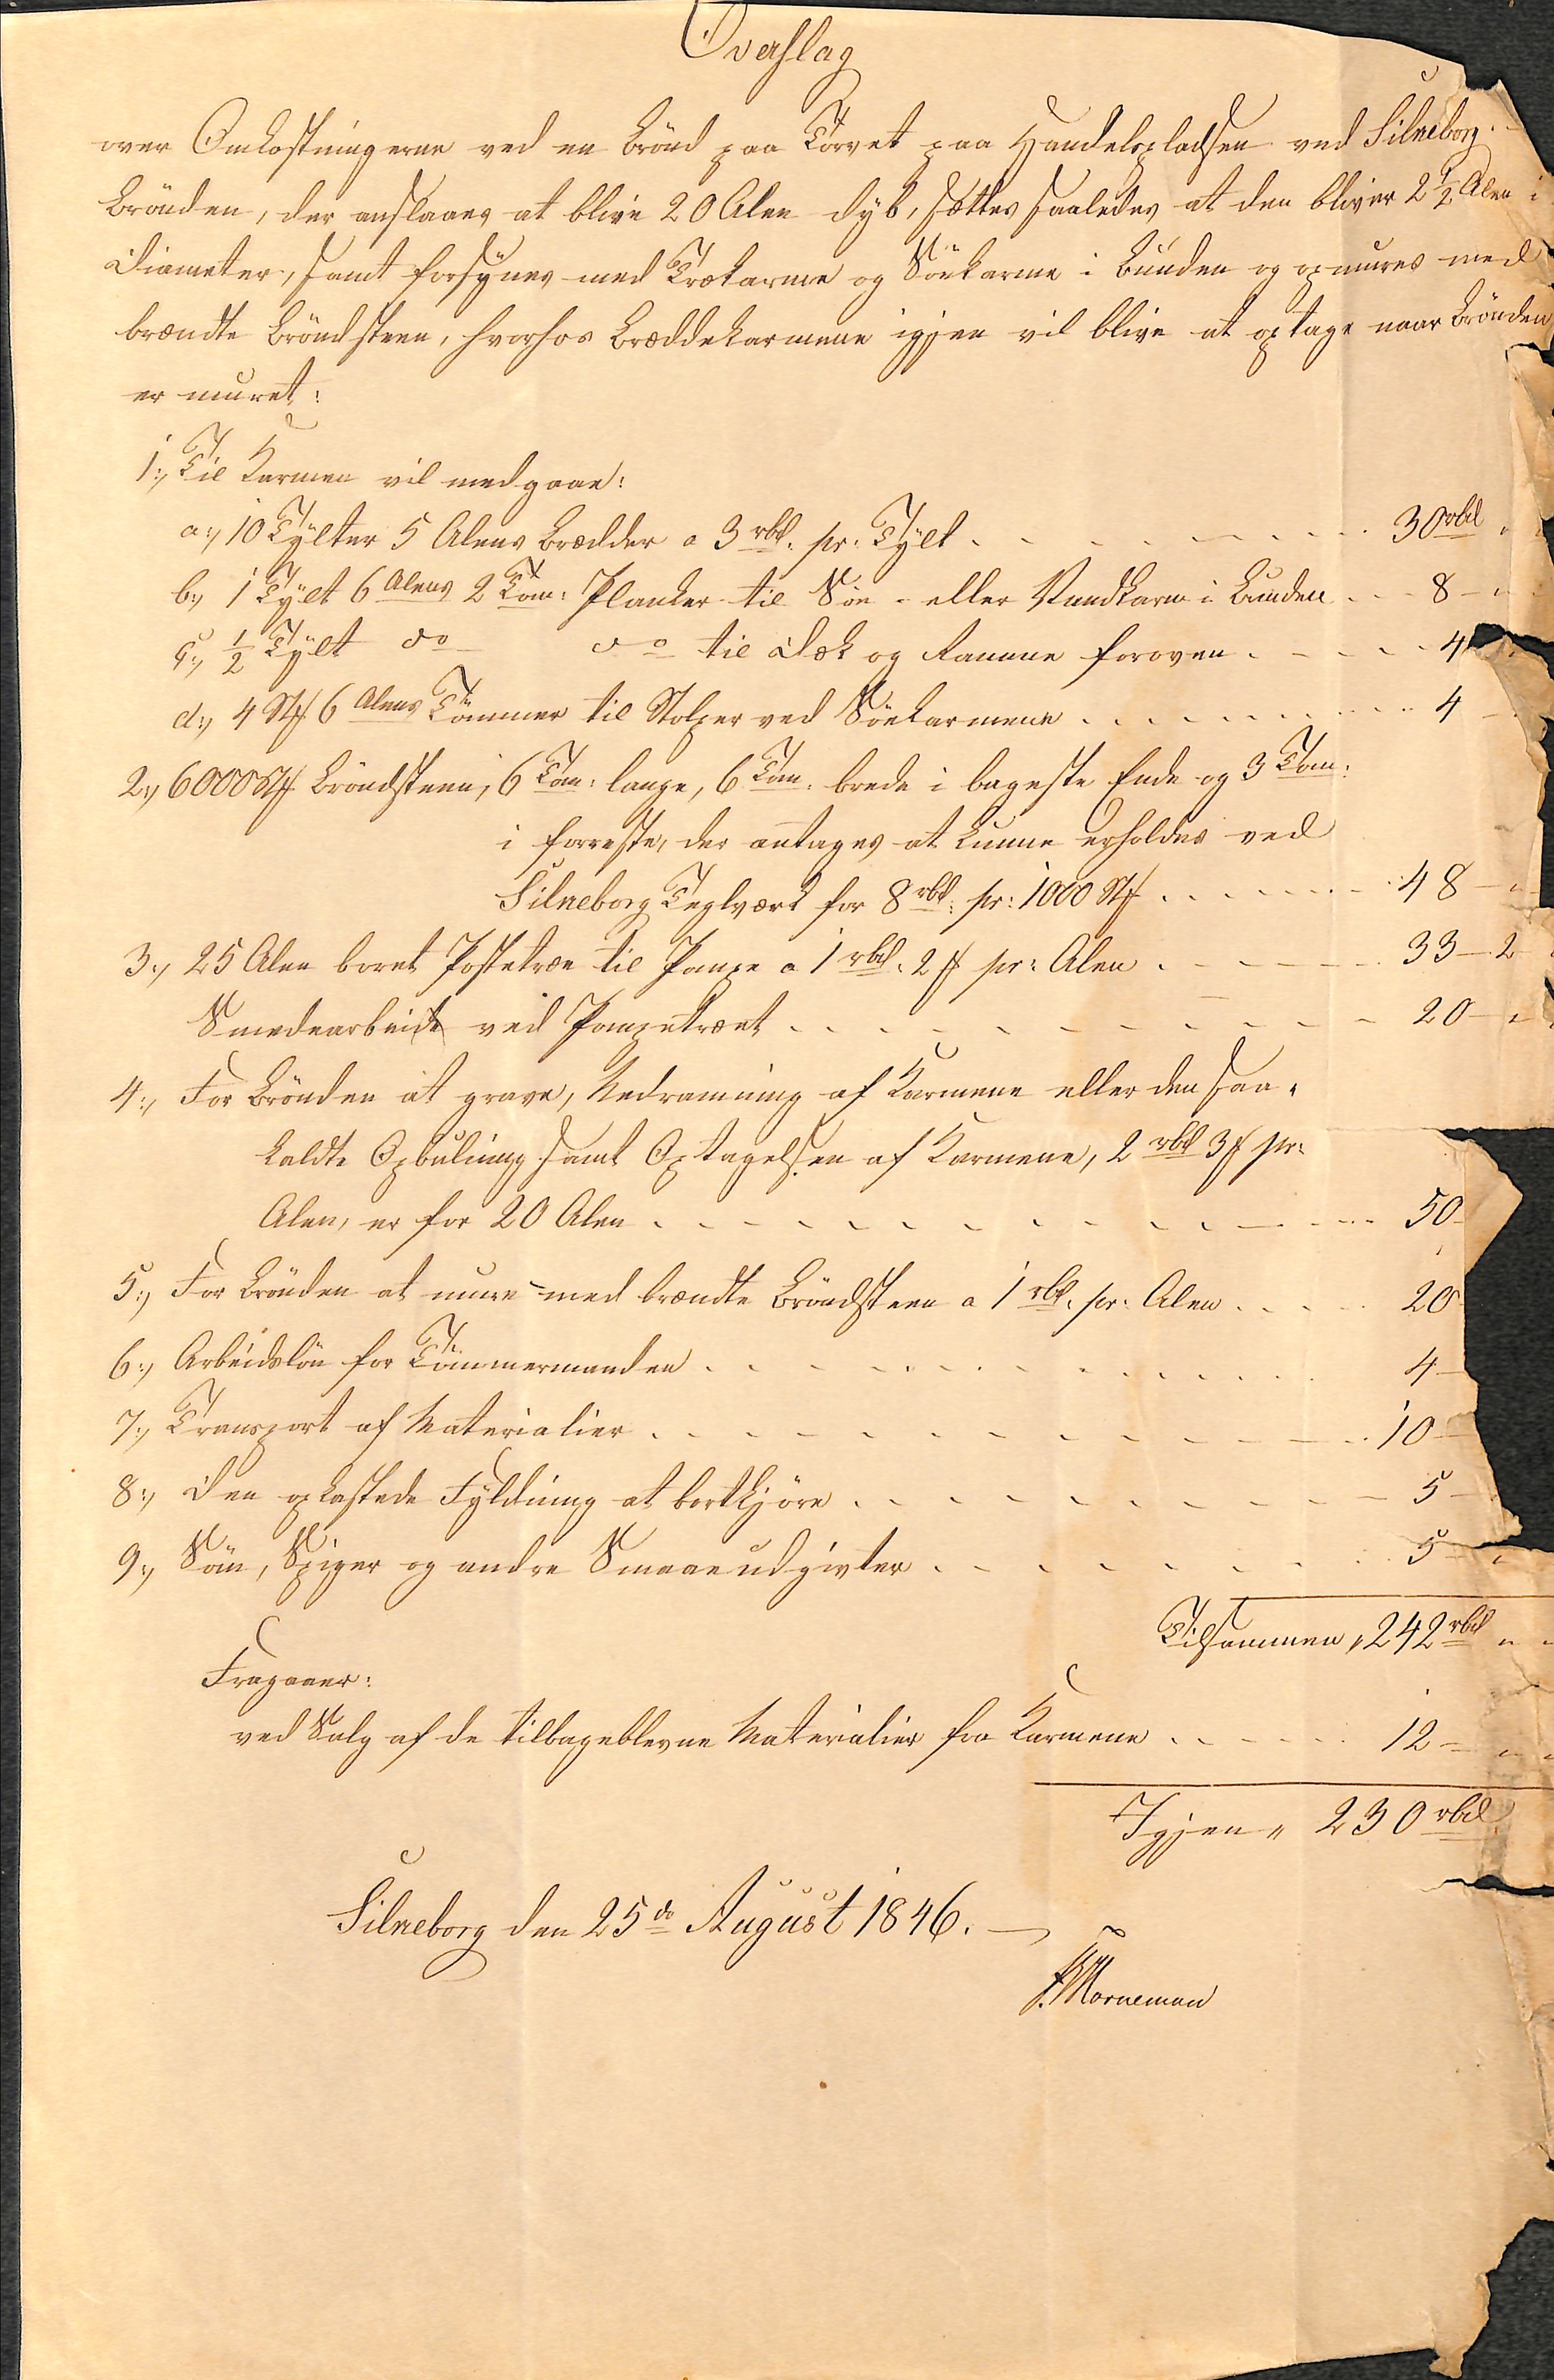 Overslag
over Omkostningerne ved en Brönd paa Torvet paa Handelspladsen ved Silkeborg.
Brönden, der anslaaes at blive 20 Alen dyb, sættes saaledes at den bliver 2 1/2 Alen i
Diameter, samt forsynes med Trækarme og Sönkarme i Bunden og opmures med
brændte Bröndsteen, hvorhos Bræddekarmene igjen vil blive at optage naar Brönden
er muret:
1:, Til Karmen vil medgaae:
a:, 10 Tylter 5 Alens Brædder a 3 rbd. pr. Tylt 30 rbd "
b:, 1 Tylt 6 Alens 2 Tom: Planker til Sön- eller Vandkarm i Bunden 8 - "
c:, 1/2 Tylt do do til Dæk og Ramme foroven 4
d:, 4 Stk 6 Alens Tömmer til Stolper ved Sönkarmene 4 -
2:, 6000 Stk Bröndsteen, 6 Tom: lange, 6 Tom. brede i bageste Ende og 3 Tom:
i forreste, der antages at kunne erholdes ved
Silkeborg Teglværk for 8 rbd. pr: 1000 Stk 48 - "
3:, 25 Alen boret Postetræ til Pompe a 1 rbd. 2 ₰ pr: Alen 33 - 2
Smedearbeide ved Pompetræet 20 - "
4:, For Brönden at grave, Nedramning af Karmene eller den saa-
kaldte Opbuling samt Optagelsen af Karmene, 2 rbd 3 ₰ pr:
Alen, er for 20 Alen 50 -
5:, For Brönden at mure med brændte Bröndsteen a 1 rbd. pr: Alen 20
6:, Arbeidslön for Tömmermanden 4 -
7:, Transport af Materialier 10 -
8:, Den opkastede Fyldning at bortkjöre 5 -
9:, Söm, Spiger og andre Smaaeudgivter 5 - "
Tilsammen, 242 rbd " "
Fragaaer:
ved Salg af de tilbageblevne Materialier fra Karmene 12 - " "
Igjen " 230 rbd
Silkeborg den 25de August 1846.